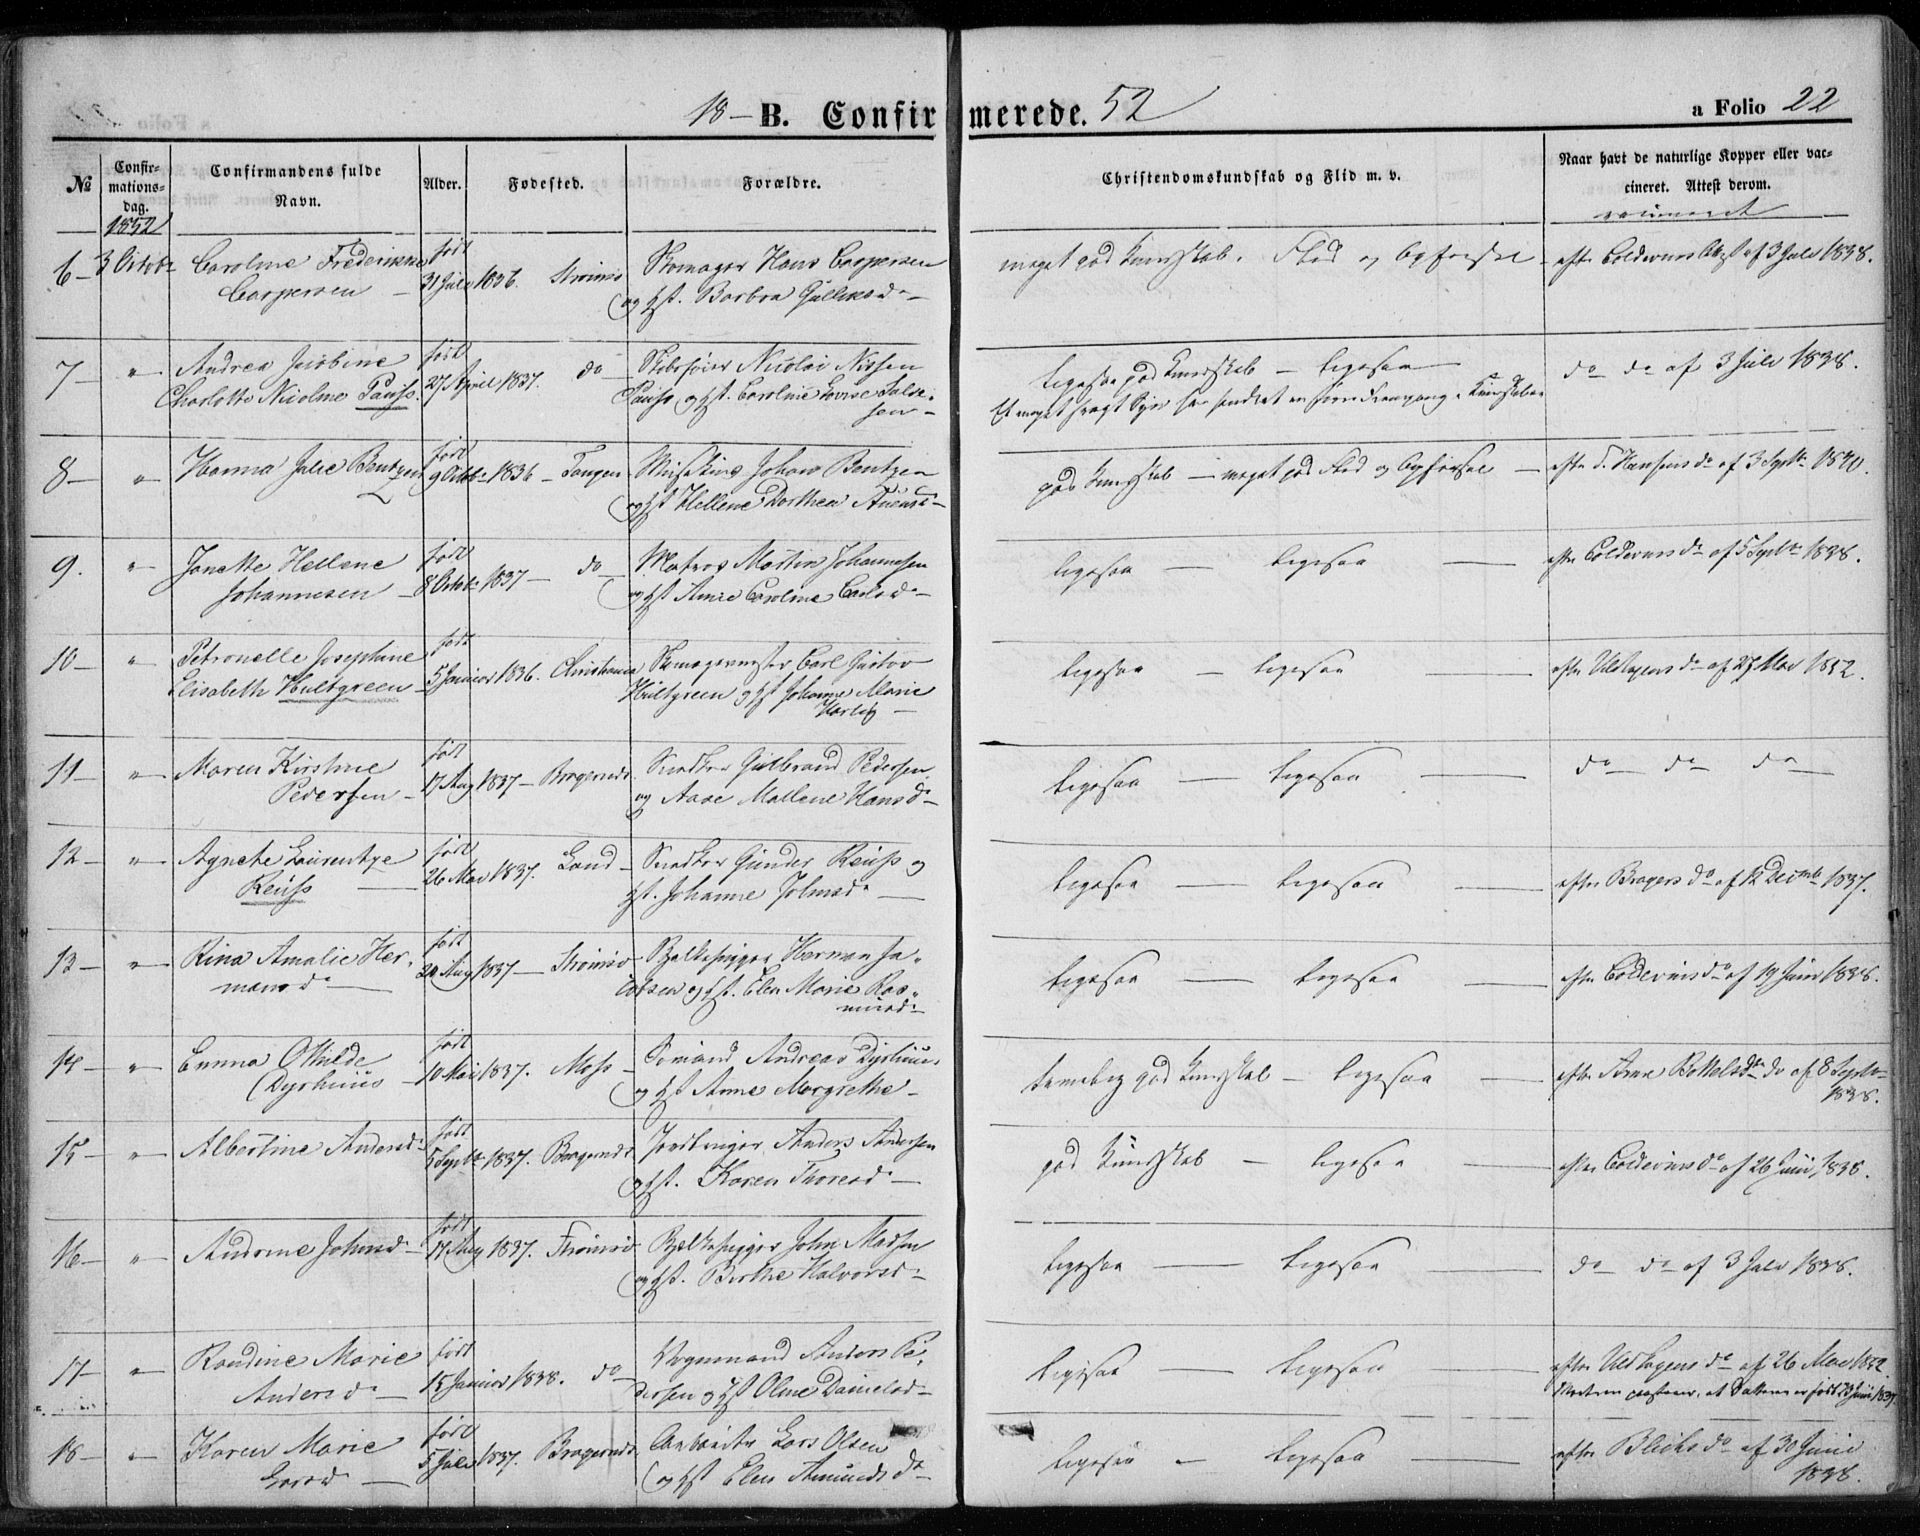 18 — B. Confirmerede. 52
a Folio 22
№
Confirmations-dag.
Confirmandens fulde Navn.
Alder.
Fødested.
Forældre.
Christendomskundskab og Flid m. v.
Naar havt de naturlige Kopper eller vaccineret. Attest derom.
1852
vaccineret
6 — 3 Octobr Caroline Frederikke født Skomager Hans Caspersen meget god Kundskab. Flid og Opførsel — efter Coldevins Attest af 3 Juli 1838.
Caspersen — 31 Juli 1836. Strømsø og Hst. Barbra Gulliksd.
7 — " Andrea Jacobine født Nicolai Nissen ligesaa god Kundskab — ligesaa — do do af 3 Juli 1838.
Charlotte Nicoline Pauss. 27 April 1837. do Pauss og Hst. Caroline Lovise Salve-
sen — Et meget svagt Syn har hindret en større Fremgang i Kundskaber
8 — " Hanna Julie Bentzen født 9 Octobr 1836 — Tangen Johan Bentzen god Kundskab — meget god Flid og Opførsel — efter Hansens do af 3 Septbr 1840.
og Hst Hellene Dorthea
9. " Janette Hellene født Matros Martin Johannesen ligesaa — ligesaa — efter Coldevins do af 5 Septbr 1838.
Johannesen — 8 Octobr 1837 — do og Hst Anne Caroline Carlsd. —
10 — " Petronelle Josephine født Skomagermester Carl Gustav ligesaa — ligesaa — efter do af 27 Mai 1852.
Elisabeth Hultgreen — 5 Januar 1836. Christiania Hultgreen og Hst Johanne Marie
11 — " Maren Kirstine født Snedker Gulbrand Pedersen ligesaa — ligesaa — do — do — do —
Pedersen — 17 Aug 1837 — Bragernæs og Aase Mallene Hansd. —
12 — " Agnete Laurentze født Snedker Gunder Reuss og ligesaa — ligesaa — efter Bragers do af 12 Decmb 1837.
Reuss — 26 Mai 1837. Land — Hst. Johanne —
13 — " Rina Amalie Her- født Bjelkehugger Herman Ja- ligesaa — ligesaa — efter Coldevins do af 19 Juni 1838.
mansd. — 24 Aug 1837 — Strømsø cobsen og Hst. Elen Marie Ras-
musd. —
14 — " Emma Othilde født Sømand Andreas Dyrhuus temelig god Kundskab — ligesaa — efter Arne do af 8 Septbr
Dyrhuus — 10 Mai 1837. Moss — og Hst Anne Margrethe — 1838.
15 — " Albertine Andersd. født Anders Andersen god Kundskab — ligesaa — efter Coldevins do af 26 Juni 1838.
5 Septbr 1837. Bragernæs og Hst. Karen Thoresd. —
16 — " Andrine Johnsd. — født Bjelkehugger John Madsen ligesaa — ligesaa — do do af 3 Juli 1838.
17 Aug 1837. Strømsø og Hst. Birthe Halvorsd. —
17 — " Randine Marie født Vognmand Anders Pe- ligesaa — ligesaa — efter do af 26 Mai 1852
Andersd. — 15 Januar 1838. do dersen og Hst Oline Danielsd. — Moderen paastaaer, at Datteren er født 23 Juni 1837
18 — " Karen Marie født Arbeider Lars Olsen ligesaa — ligesaa — efter Blichs do af 30 Juni
Larsd. — 5 Juli 1837. Bragernæs og Hst Elen Amundsd. — 1838.